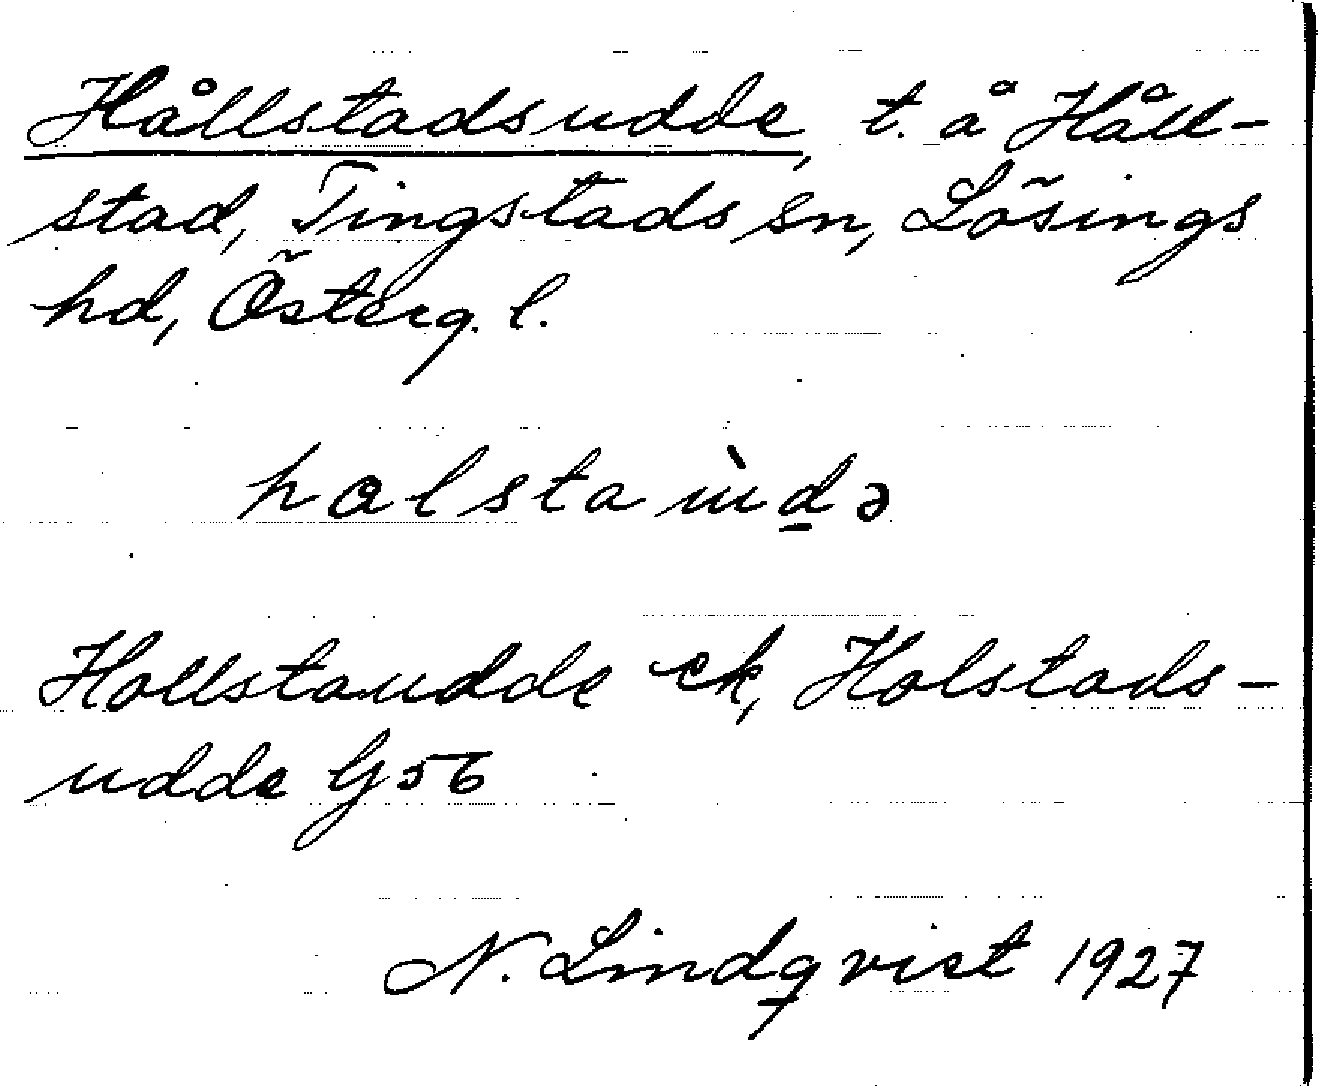 Hållstadsudde, t. å Håll-
stad, Tingstads sn, Lösings
hd, Österg. l.
halstaùd̲ə
Hollstaudde ek, Holstads-
udde G 56
N. Lindqvist 1927